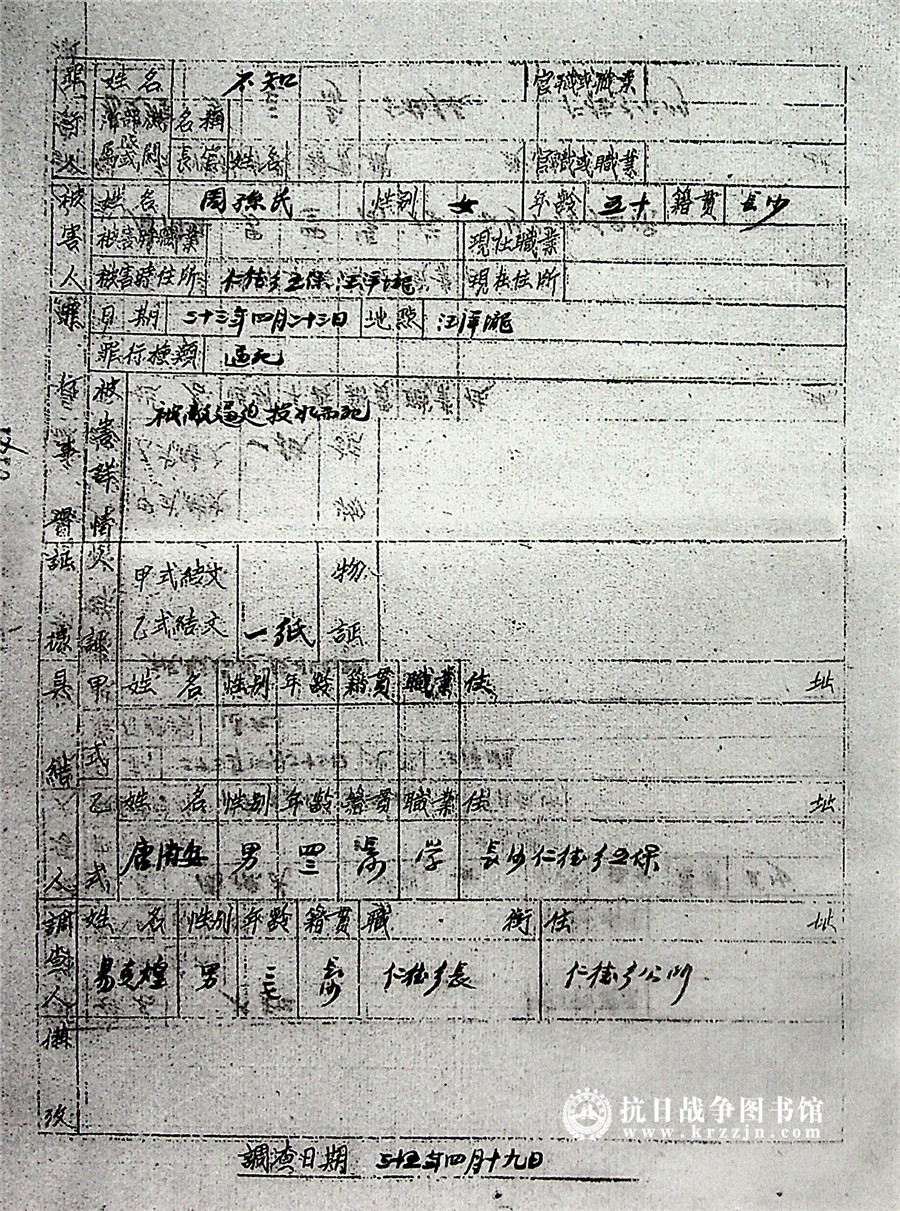 罪行人 姓名 不知 官職或職業
名稱
長官姓名 官職或職業
被害人 姓名 周孫氏 性別 女 年齡 五十 籍貫 長沙
被害時職業 現在職業
被害時住所 現在住所
日期 三十三年四月二十三日 地點
罪行種類 逼死
被害詳情
被敵逼迫投水而死
甲式結文
乙式結文 一紙
物証
甲式 姓名 性別 年齡 籍貫 職業 住址
乙式 姓名 性別 年齡 籍貫 職業 住址
男 四三 長沙 学 長沙仁德乡五保
調查人 姓名 性別 年齡 籍貫 職銜 住址
男 長沙 仁德乡長 仁德乡公所
備攷
抗日战争图书馆
www.krzzjn.com
調查日期 三十五年四月十九日